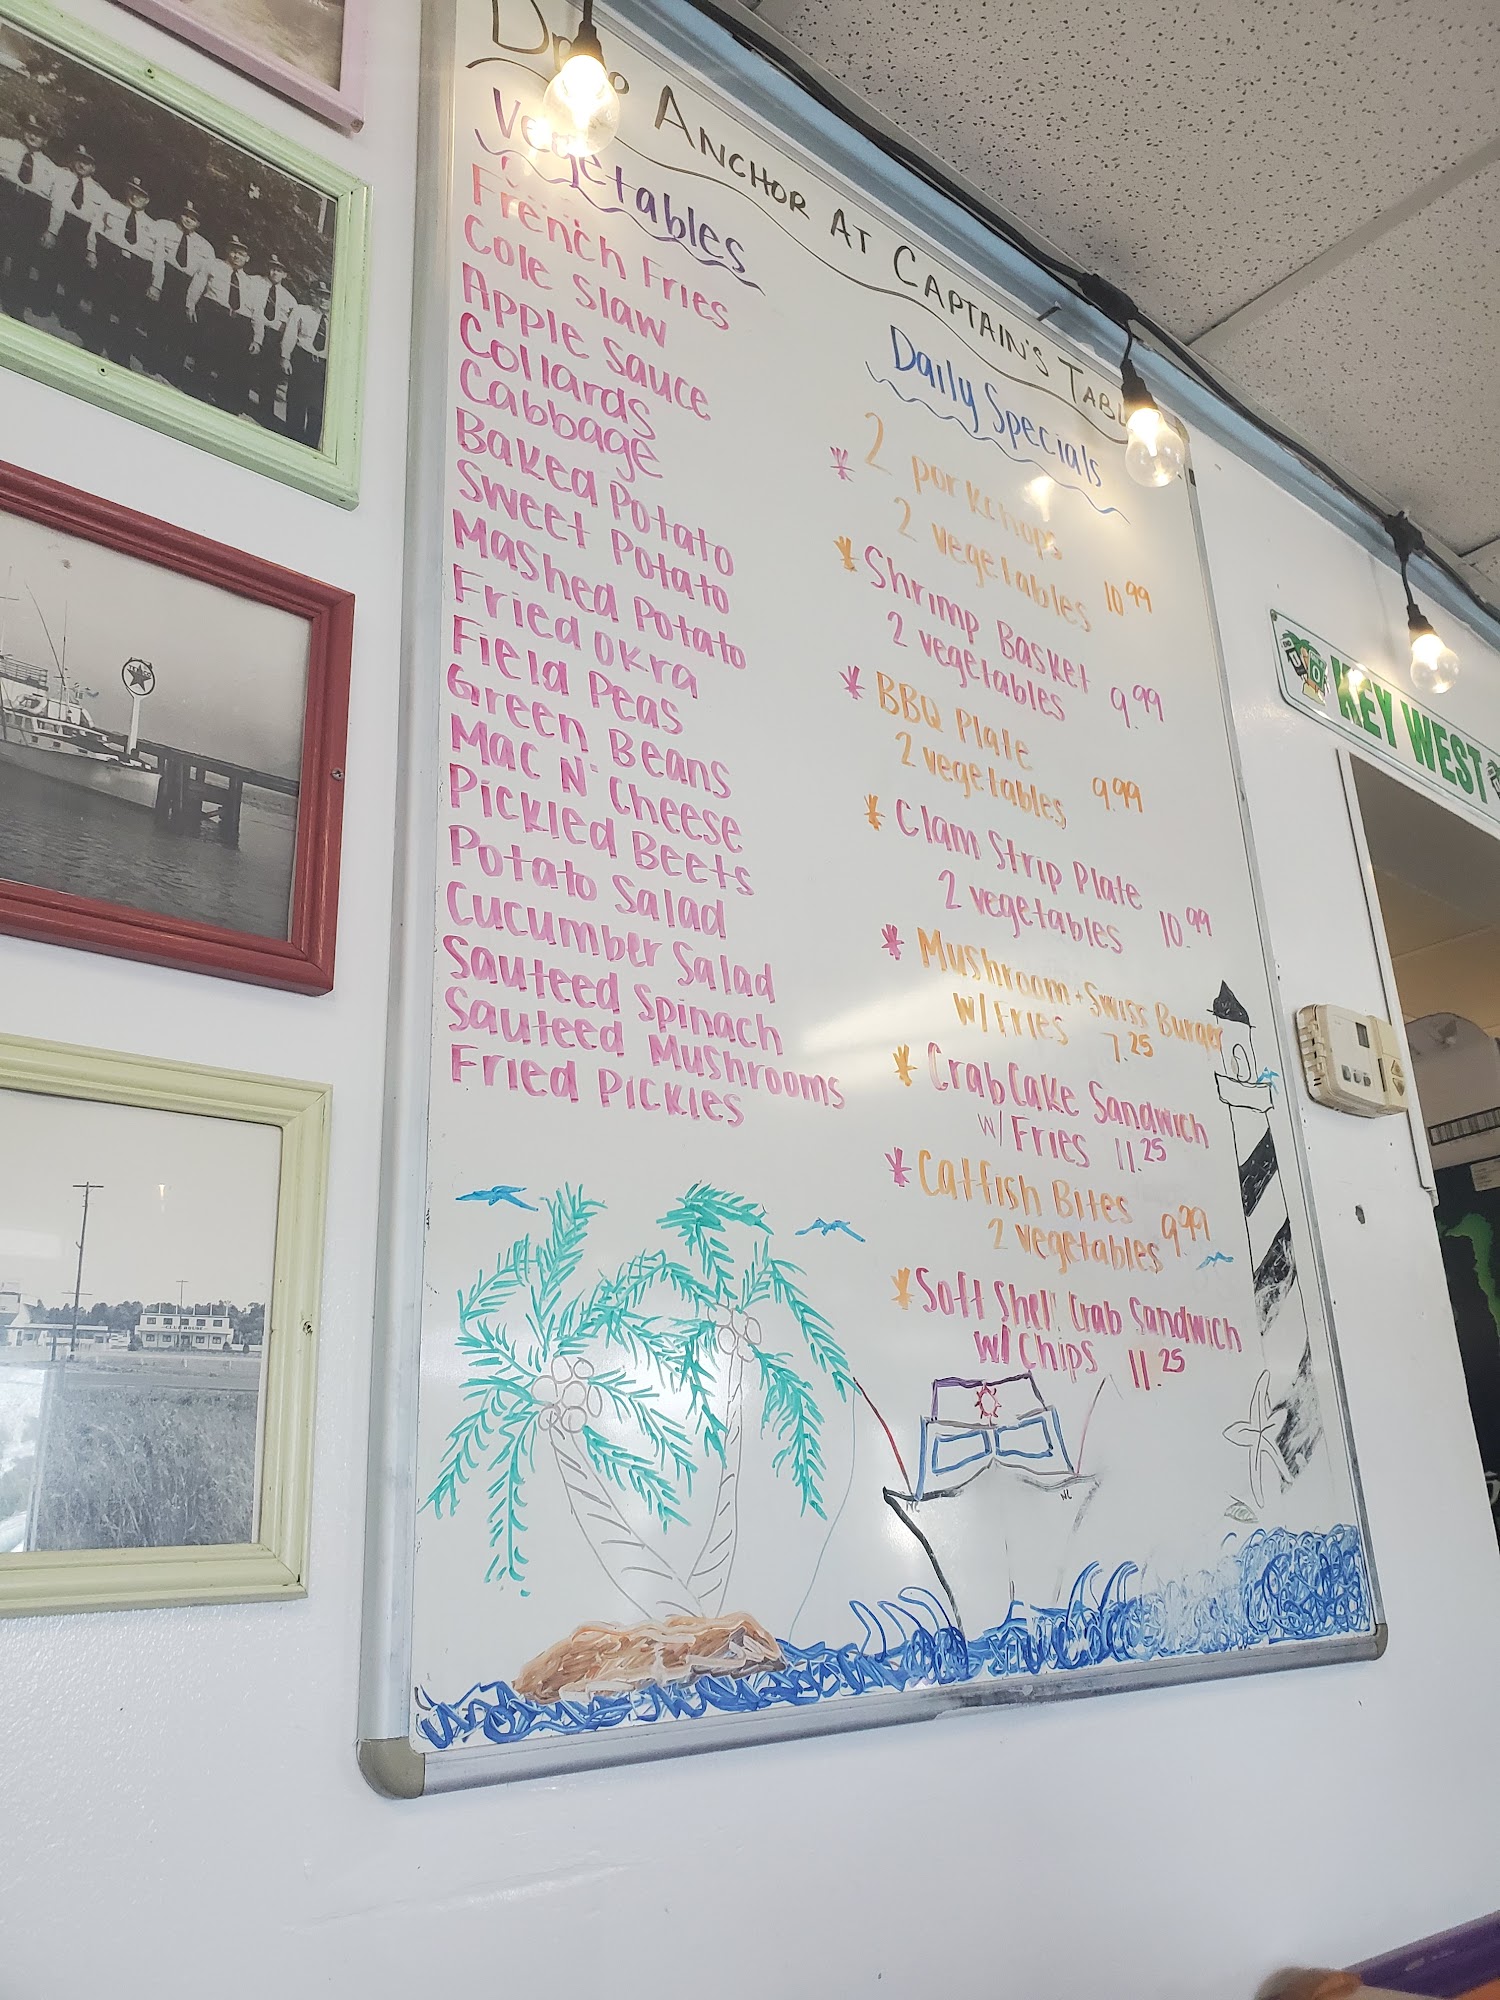 Drop Anchor At Captain's Table
Vegetables
French Fries
Cole Slaw
Apple Sauce
Collards
Cabbage
Baked Potato
Sweet Potato
Mashed Potato
Fried Okra
Field Peas
Green Beans
Mac N' Cheese
Pickled Beets
Potato Salad
Cucumber Salad
Sauteed Spinach
Sauteed Mushrooms
Fried Pickles
Daily Specials
* 2 porkchops
2 vegetables 10.99
* Shrimp Basket
2 vegetables 9.99
* BBQ Plate
2 vegetables 9.99
* Clam Strip Plate
2 vegetables 10.99
* Mushroom + Swiss Burger
w/ Fries 7.25
* Crab Cake Sandwich
w/ Fries 11.25
* Catfish Bites
2 vegetables 9.99
* Soft Shell Crab Sandwich
w/ Chips 11.25
NC
NC
KEY WEST
TEXACO